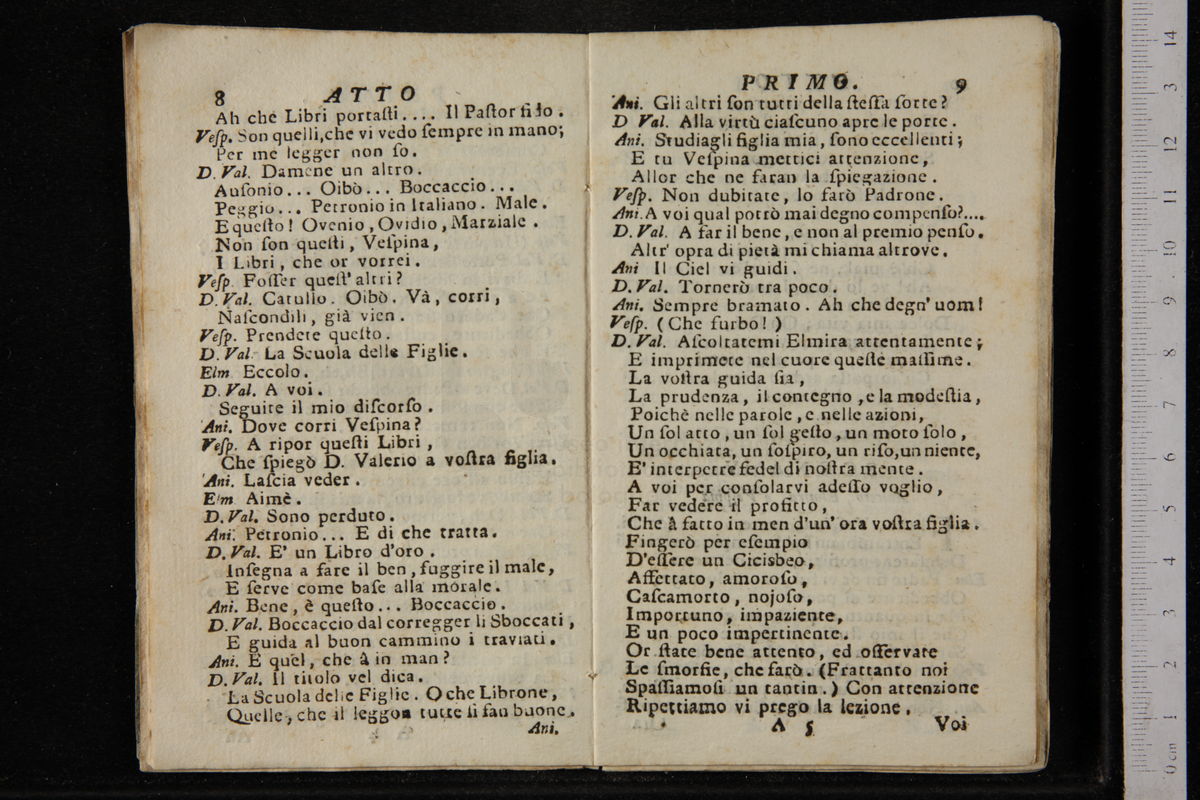 8 ATTO
Ah che Libri portaſti.... Il Paſtor fido.
Veſp. Son quelli, che vi vedo ſempre in mano;
Per me legger non ſo.
D. Val. Damene un altro.
Auſonio... Oibò... Boccaccio...
Peggio... Petronio in Italiano. Male.
E queſto! Ovenio, Ovidio, Marziale.
Non ſon queſti, Veſpina,
I Libri, che or vorrei.
Veſp. Foſſer queſt' altri?
D. Val. Catullo. Oibò. Và, corri,
Naſcondili, già vien.
Veſp. Prendete queſto.
D. Val. La Scuola delle Figlie.
Elm. Eccolo.
D. Val. A voi.
Seguite il mio diſcorſo.
Ani. Dove corri Veſpina?
Veſp. A ripor queſti Libri,
Che ſpiegò D. Valerio a voſtra figlia.
Ani. Laſcia veder.
Elm. Aimè.
D. Val. Sono perduto.
Ani. Petronio... E di che tratta.
D. Val. E' un Libro d'oro.
Inſegna a fare il ben, fuggire il male,
E ſerve come baſe alla morale.
Ani. Bene, è queſto... Boccaccio.
D. Val. Boccaccio dal corregger li Sboccati,
E guida al buon cammino i traviati.
Ani. E quel, che à in man?
D. Val. Il titolo vel dica.
La Scuola delle Figlie. O che Librone,
Quelle, che il leggon tutte ſi fan buone.
Ani.
PRIMO. 9
Ani. Gli altri ſon tutti della ſteſſa ſorte?
D Val. Alla virtù ciaſcuno apre le porte.
Ani. Studiagli figlia mia, ſono eccellenti;
E tu Veſpina mettici attenzione,
Allor che ne faran la ſpiegazione.
Veſp. Non dubitate, lo farò Padrone.
Ani. A voi qual potrò mai degno compenſo?....
D. Val. A far il bene, e non al premio penſo.
Altr' opra di pietà mi chiama altrove.
Ani Il Ciel vi guidi.
D. Val. Tornerò tra poco.
Ani. Sempre bramato. Ah che degn' uom!
Veſp. (Che furbo!)
D. Val. Aſcoltatemi Elmira attentamente;
E imprimete nel cuore queſte maſſime.
La voſtra guida ſia,
La prudenza, il contegno, e la modeſtia,
Poichè nelle parole, e nelle azioni,
Un ſol atto, un ſol geſto, un moto ſolo,
Un occhiata, un ſoſpiro, un riſo, un niente,
E' interpetre fedel di noſtra mente.
A voi per conſolarvi adeſſo voglio,
Far vedere il profitto,
Che à fatto in men d'un' ora voſtra figlia.
Fingerò per eſempio
D'eſſere un Cicisbeo,
Affettato, amoroſo,
Caſcamorto, nojoſo,
Importuno, impaziente,
E un poco impertinente.
Or ſtate bene attento, ed oſſervate
Le ſmorfie, che farò. (Frattanto noi
Spaſſiamoſi un tantin.) Con attenzione
Ripettiamo vi prego la lezione.
A 5 Voi
0 cm 1 2 3 4 5 6 7 8 9 10 11 12 13 14